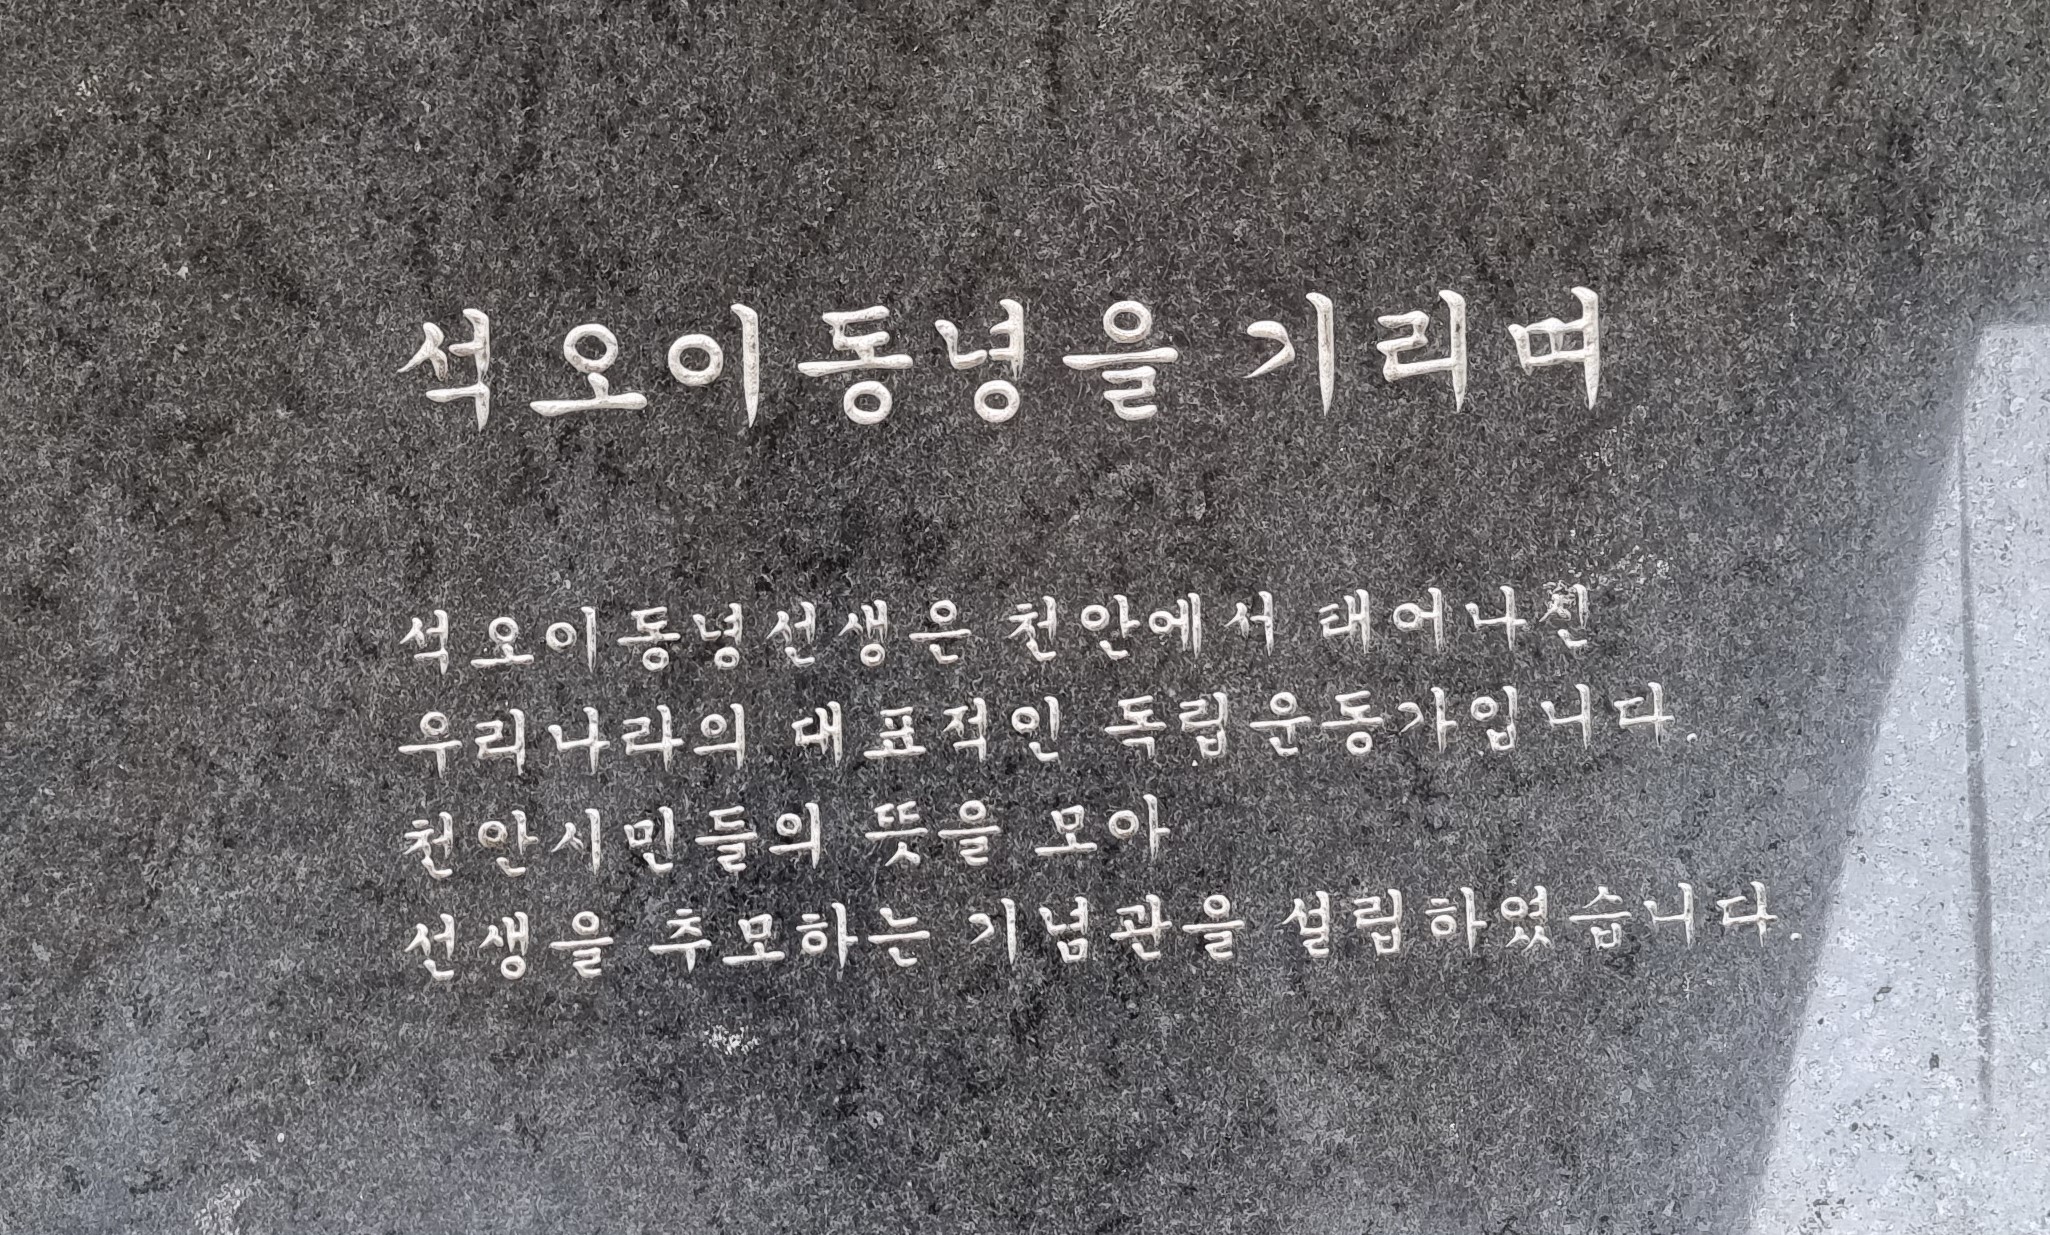 석오이동녕을 기리며
석오이동녕선생은 천안에서 태어나신
우리나라의 대표적인 독립운동가입니다.
천안시민들의 뜻을 모아
선생을 추모하는 기념관을 설립하였습니다.